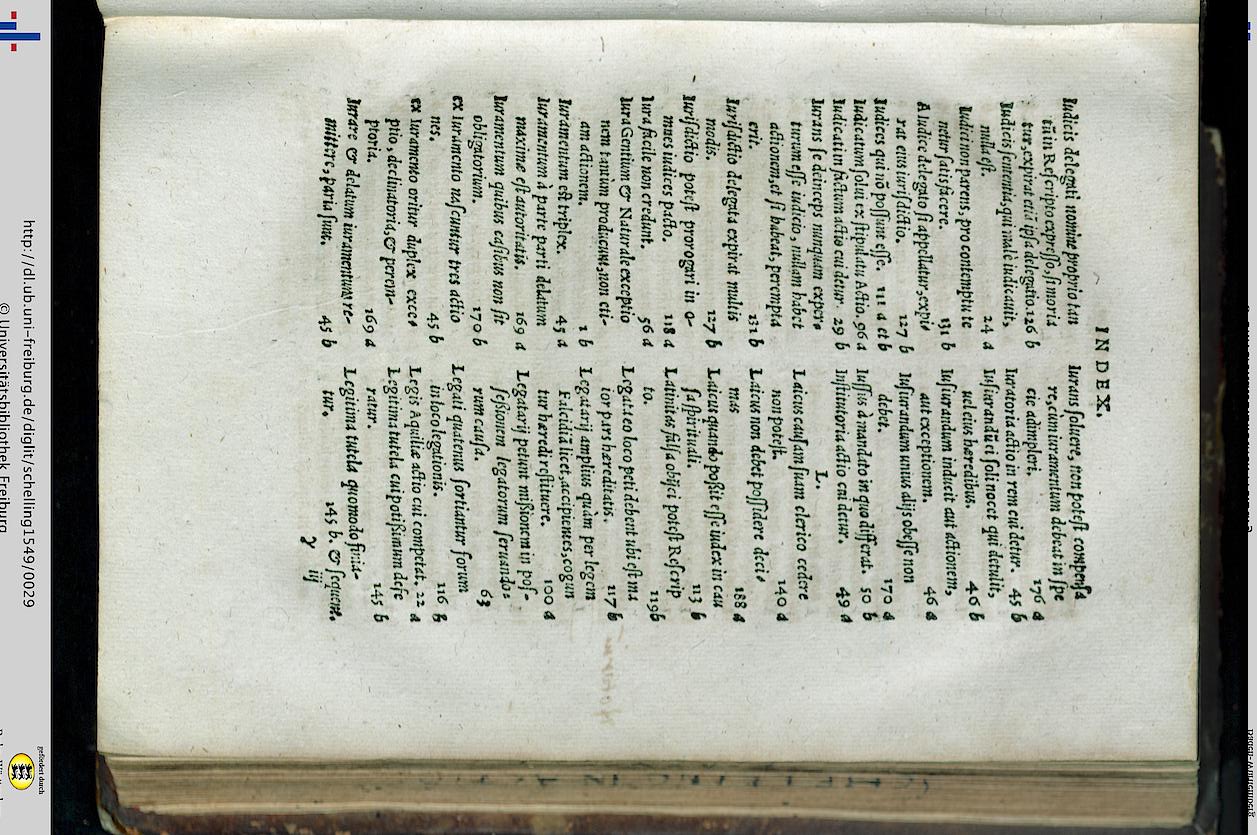 INDEX.
Iudicis delegati nomine proprio tan
tũ in Rescripto expresso, si moria
tur, expirat etiã ipsa delegatio. 126 b
Iudicis sententia, qui malè iudicauit,
nulla est. 24 a
Iudici non parens, pro contemptu te
netur satisfacere. 131 b
A Iudice delegato si appellatur, expi
ras eius iurisdictio. 127 b
Iudices qui nõ possunt esse. 111 a et b
Iudicatum solui ex stipulatu Actio. 96 a
Iudicati in factum actio cui detur. 29 b
Iurans se deinceps nunquam exper-
turum esse iudicio, nullam habet
actionem, et si habeat, perempta
erit. 131 b
Iurisdictio delegata expirat multis
modis. 127 b
Iurisdictio potest prorogari in o-
mnes iudices pacto. 118 a
Iura facile non credunt. 56 a
Iura Gentium & Naturale exceptio
nem tantum producunt, non eti-
am actionem. 1 b
Iuramentum est triplex. 45 a
Iuramentum à parte parti delatum
maximæ est autoritatis. 169 a
Iuramentum quibus casibus non sit
obligatorium. 170 b
ex Iuramento nascuntur tres actio
nes. 45 b
ex Iuramento oritur duplex exce-
ptio, declinatoria, & perem-
ptoria. 169 a
Iurare & delatum iuramentum re-
mittere, paria sunt. 45 b
Iurans soluere, non potest compensa
re, cum iuramentum debeat in spe
cie adimpleri. 176 a
Iuratoria actio in rem cui detur. 45 b
Iusiurandũ ei soli nocet qui detulit,
uel eius hæredibus. 46 b
Iusiurandum inducit aut actionem,
aut exceptionem. 46 a
Iusiurandum unius alijs obesse non
debet. 170 a
Iussus à mandato in quo differat. 50 b
Institutoria actio cui detur. 49 a
L.
Laicus causam suam clerico cedere
non potest. 140 a
Laicus non debet possidere deci-
mas 188 a
Laicus quando poßit esse iudex in cau
sa spirituali. 113 b
Latinitas falsa obijci potest Rescrip
to. 119 b
Legata eo loco peti debent ubi est ma
ior pars hæreditatis. 117 b
Legatarij amplius quàm per legem
Falcidiã licet, accipientes, cogun
tur hæredi restituere. 100 a
Legatarij petunt mißionem in pos-
sessionem legatorum seruando-
rum causa. 63
Legati quatenus sortiantur forum
in loco legationis. 116 b
Legis Aquiliæ actio cui competat. 22 a
Legitima tutela cui potißimum defe
ratur. 145 b
Legitima tutela quomodo finia-
tur. 145 b. & sequent.
γ iij
http://dl.ub.uni-freiburg.de/diglit/schelling1549/0029
© Universitätsbibliothek Freiburg
gefördert durch